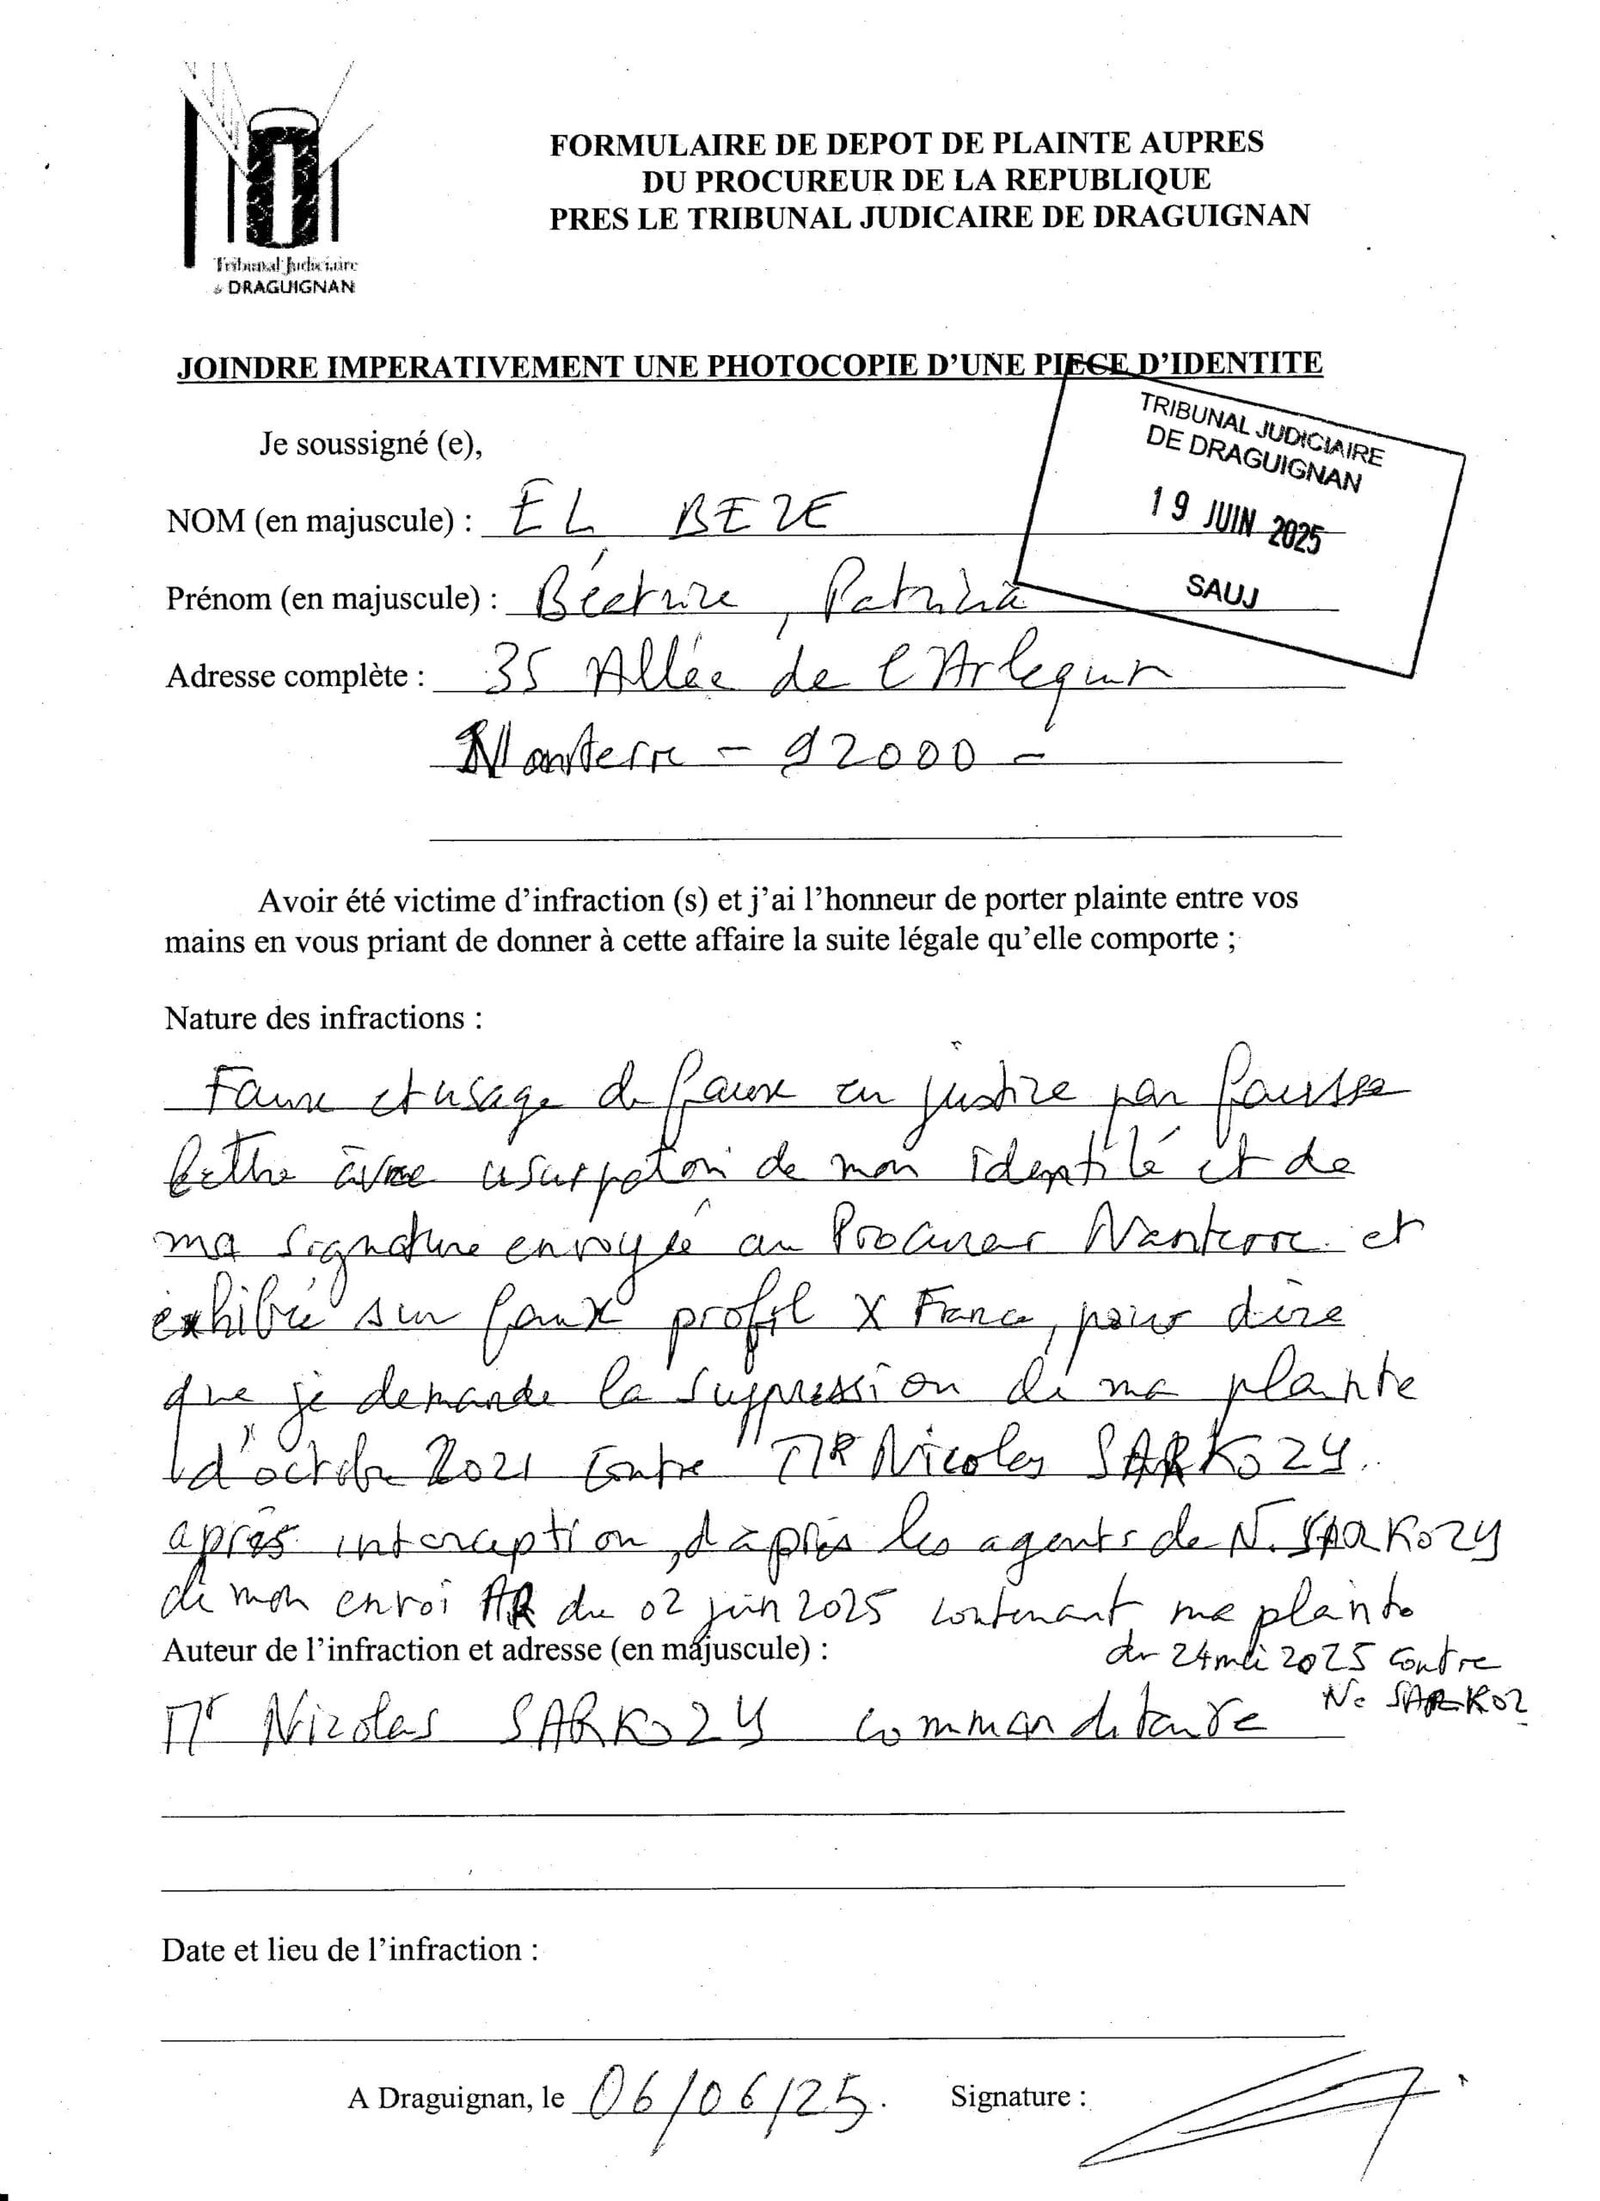 FORMULAIRE DE DEPOT DE PLAINTE AUPRES
DU PROCUREUR DE LA REPUBLIQUE
PRES LE TRIBUNAL JUDICAIRE DE DRAGUIGNAN
Tribunal Judiciaire
de DRAGUIGNAN
JOINDRE IMPERATIVEMENT UNE PHOTOCOPIE D'UNE PIECE D'IDENTITE
TRIBUNAL JUDICIAIRE
DE DRAGUIGNAN
19 JUIN 2025
SAUJ
Je soussigné (e),
NOM (en majuscule) : EL BEZE
Prénom (en majuscule) : Béatrice, Patricia
Adresse complète : 35 Allée de l'Arlequin
Nanterre - 92000 -
Avoir été victime d'infraction (s) et j'ai l'honneur de porter plainte entre vos
mains en vous priant de donner à cette affaire la suite légale qu'elle comporte ;
Nature des infractions :
Faux et usage de faux en justice par fausse
lettre avec usurpation de mon identité et de
ma signature envoyée au Procureur Nanterre et
exhibée sur faux profil X France, pour dire
que je demande la suppression de ma plainte
d'octobre 2021 contre Mr Nicolas SARKOZY.
après interception, d'après les agents de N. SARKOZY
de mon envoi AR du 02 juin 2025 contenant ma plainte
du 24 mai 2025 contre
N. SARKOZ
Auteur de l'infraction et adresse (en majuscule) :
Mr Nicolas SARKOZY commanditaire
Date et lieu de l'infraction :
A Draguignan, le 06/06/25. Signature :